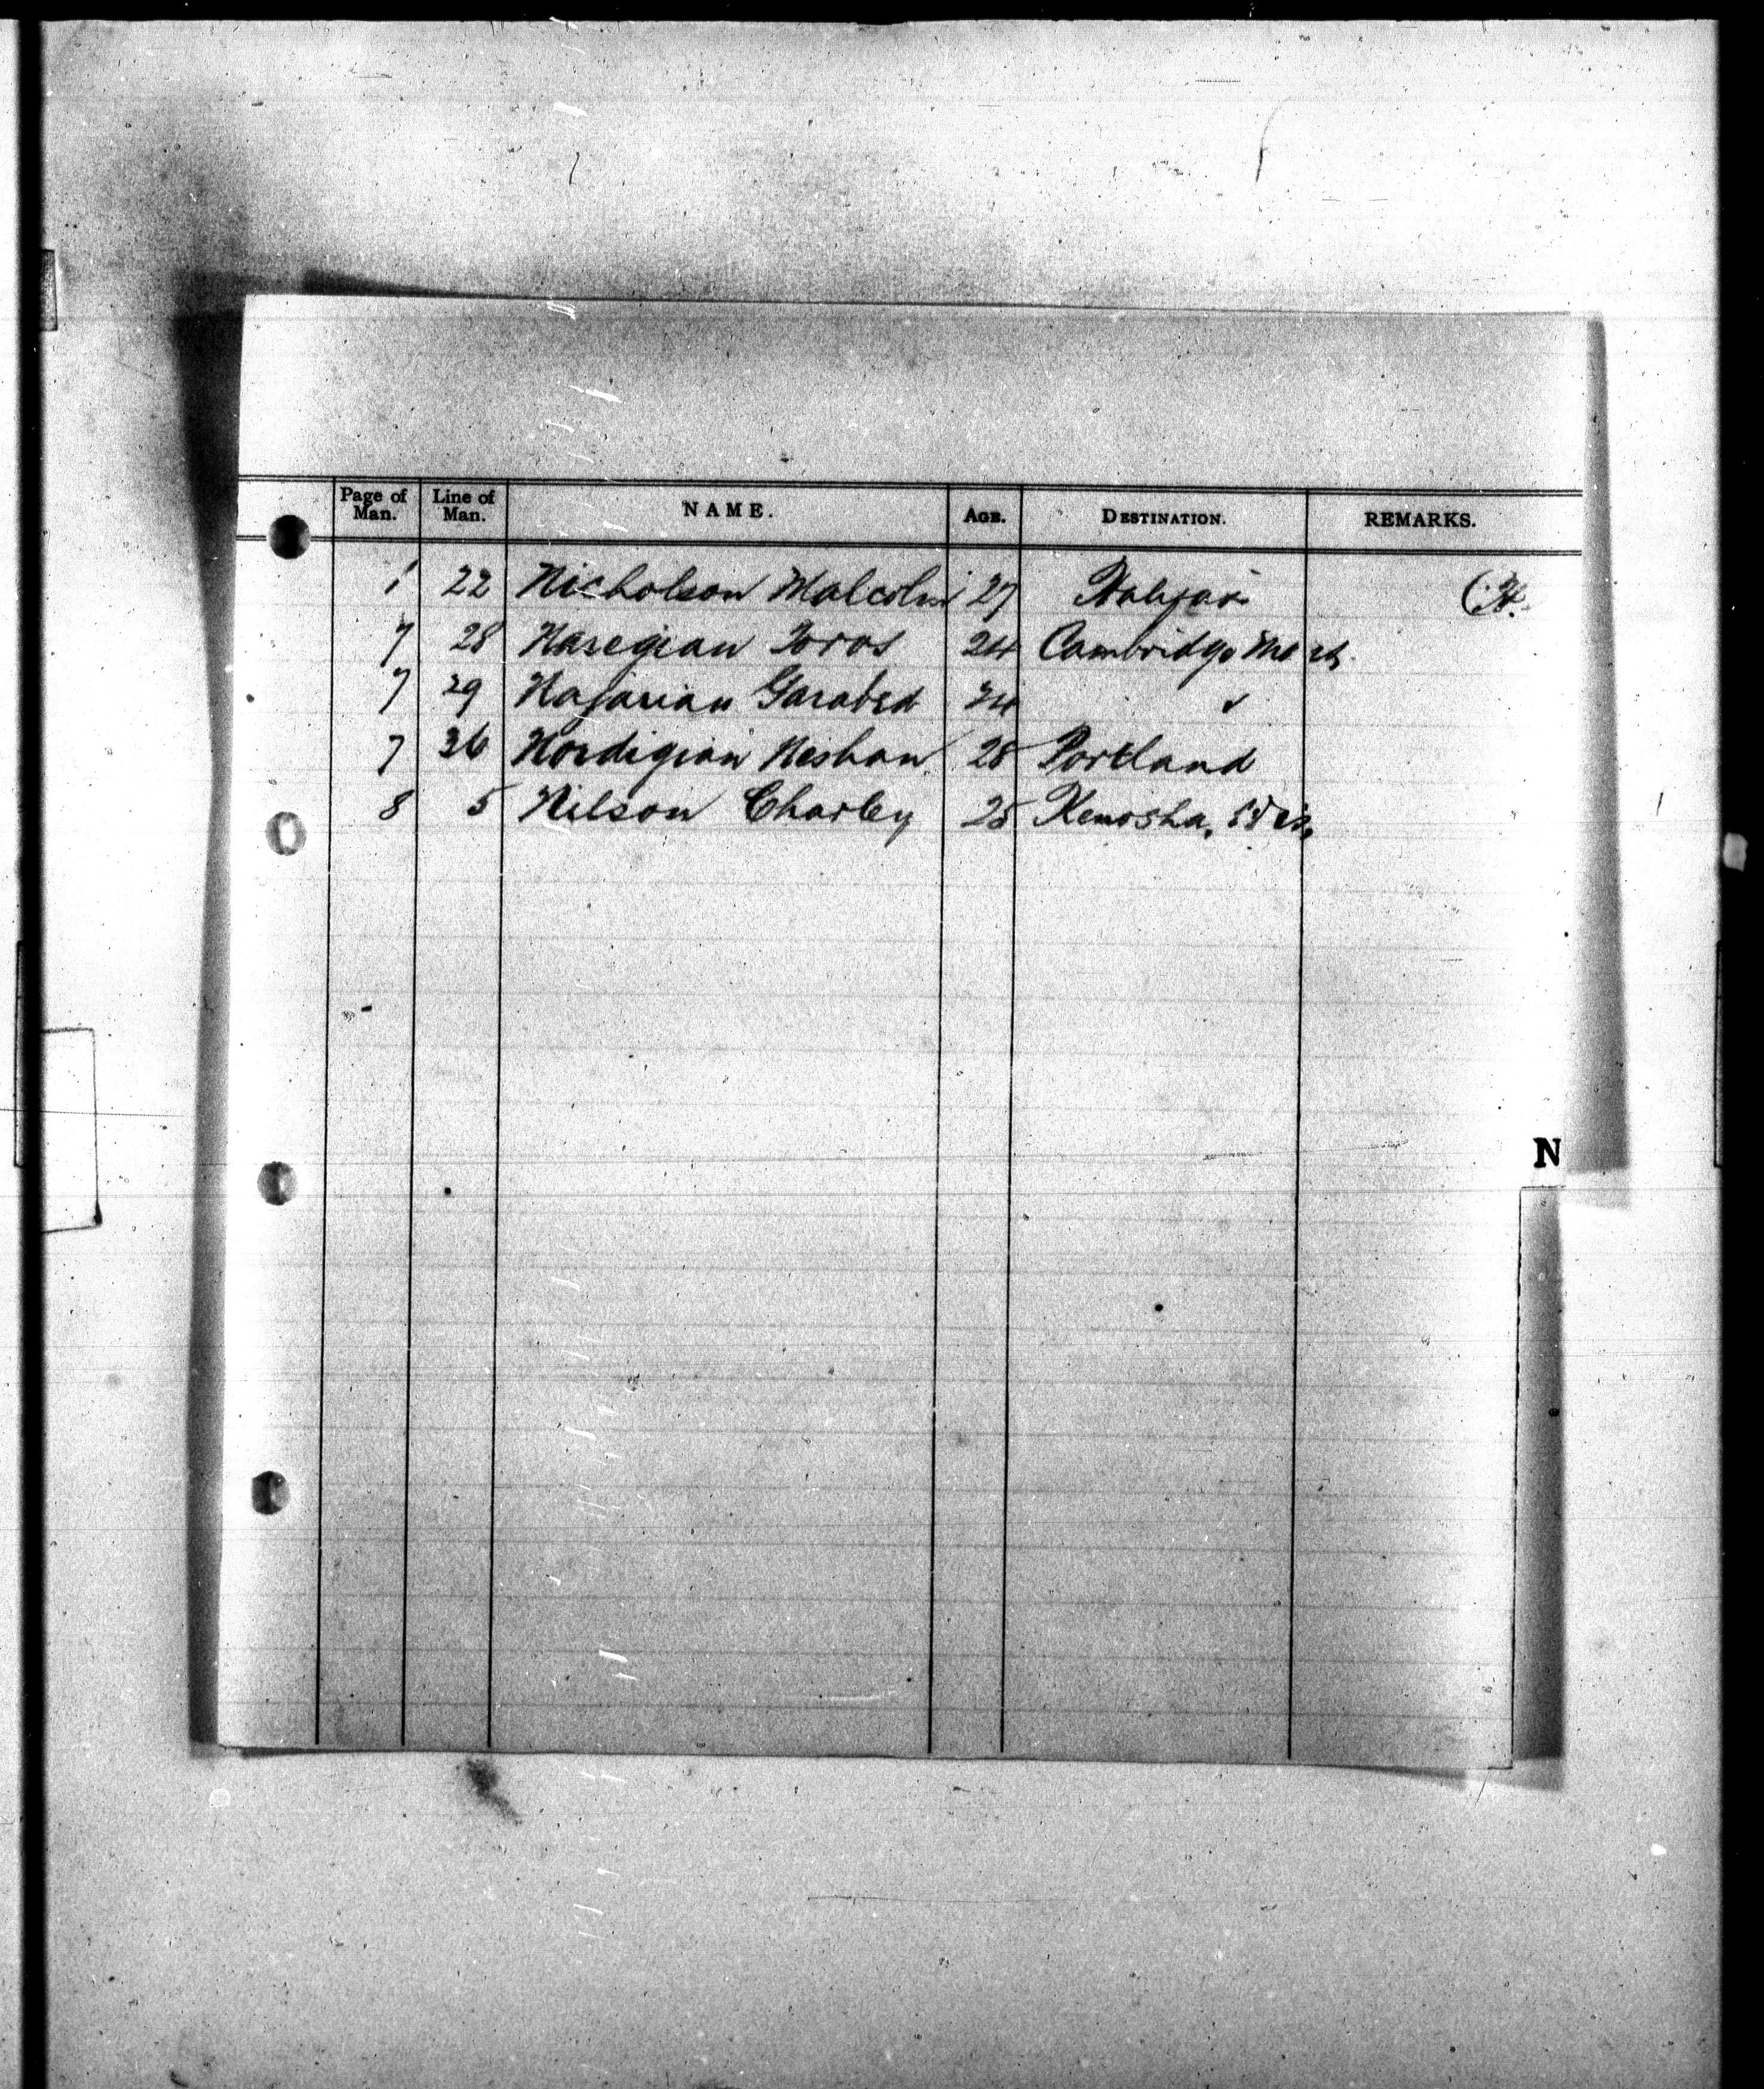 Page of Man. Line of Man. NAME. AGE. DESTINATION. REMARKS.
1 22 Nicholson Malcolm 27 Halifax (H.
7 28 Naregian Toros 24 Cambridge Mass.
7 29 Najarian Garabed 24 "
7 36 Nordigian Neshan 28 Portland
8 5 Nilson Charley 25 Kenosha, Wis.
N